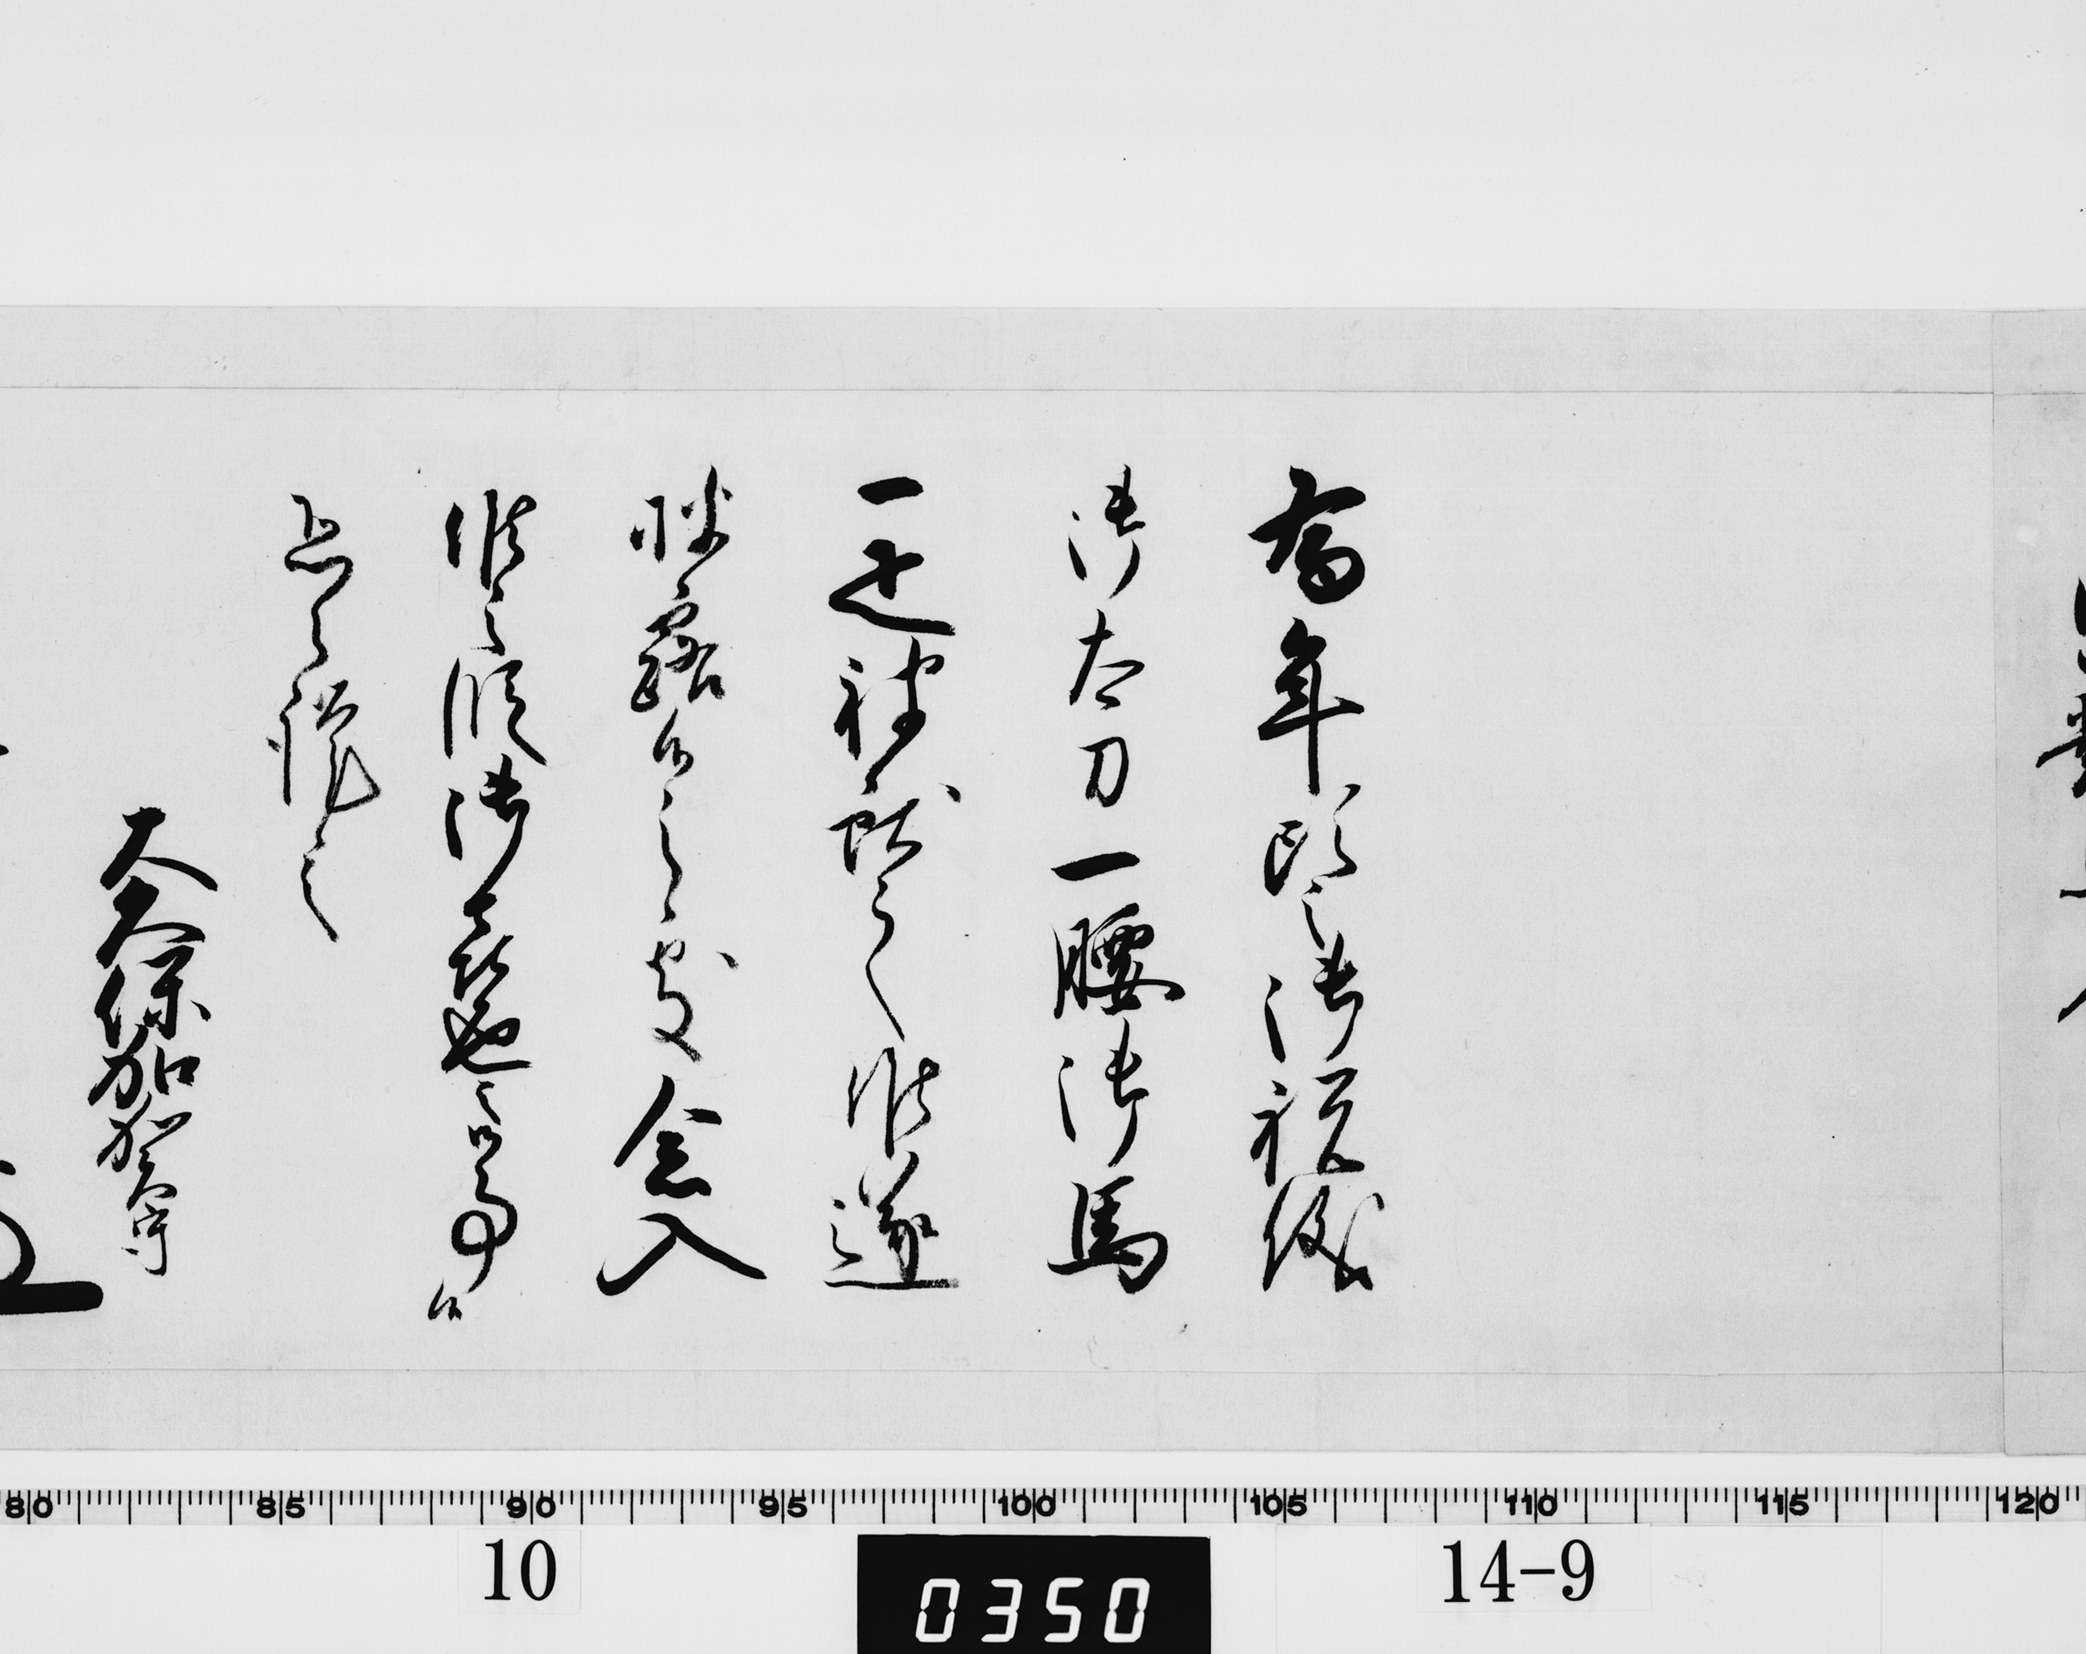 為年頭之御祝儀
御太刀一腰御馬
一疋被献之候遂
披露候之處念入
候之段御喜色之御事候
恐々謹言
大久保加賀守
80 85 90 95 100 105 110 115 120
10
0350
14-9